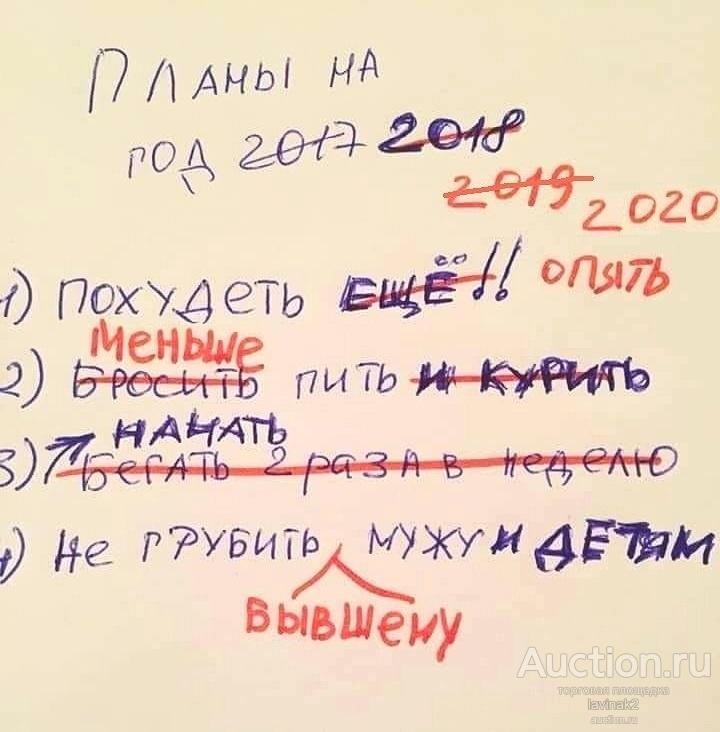 Планы на
год 2017 2018
2019 2020
1) похудеть ЕЩЁ!! опять
меньше
2) бросить пить и курить
НАЧАТЬ
3) бегать 2 раза в неделю
4) не грубить мужу и ДЕТЯМ
бывшему
Auction.ru
торговая площадка
lavinak2
auction.ru